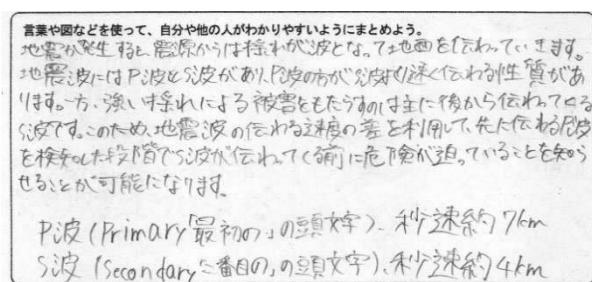 言葉や図などを使って、自分や他の人がわかりやすいようにまとめよう。
地震が発生すると、震源からは揺れが波となって地面を伝わっていきます。
地震波にはP波とS波があり、P波の方がS波より速く伝わる性質があ
ります。一方、強い揺れによる被害をもたらすのは主に後から伝わってくる
S波です。このため、地震波の伝わる速度の差を利用して、先に伝わるP波
を検知した段階でS波が伝わってくる前に危険が迫っていることを知ら
せることが可能になります。
P波(Primary「最初の」の頭文字)、秒速約7km
S波(Secondary「二番目の」の頭文字)、秒速約4km